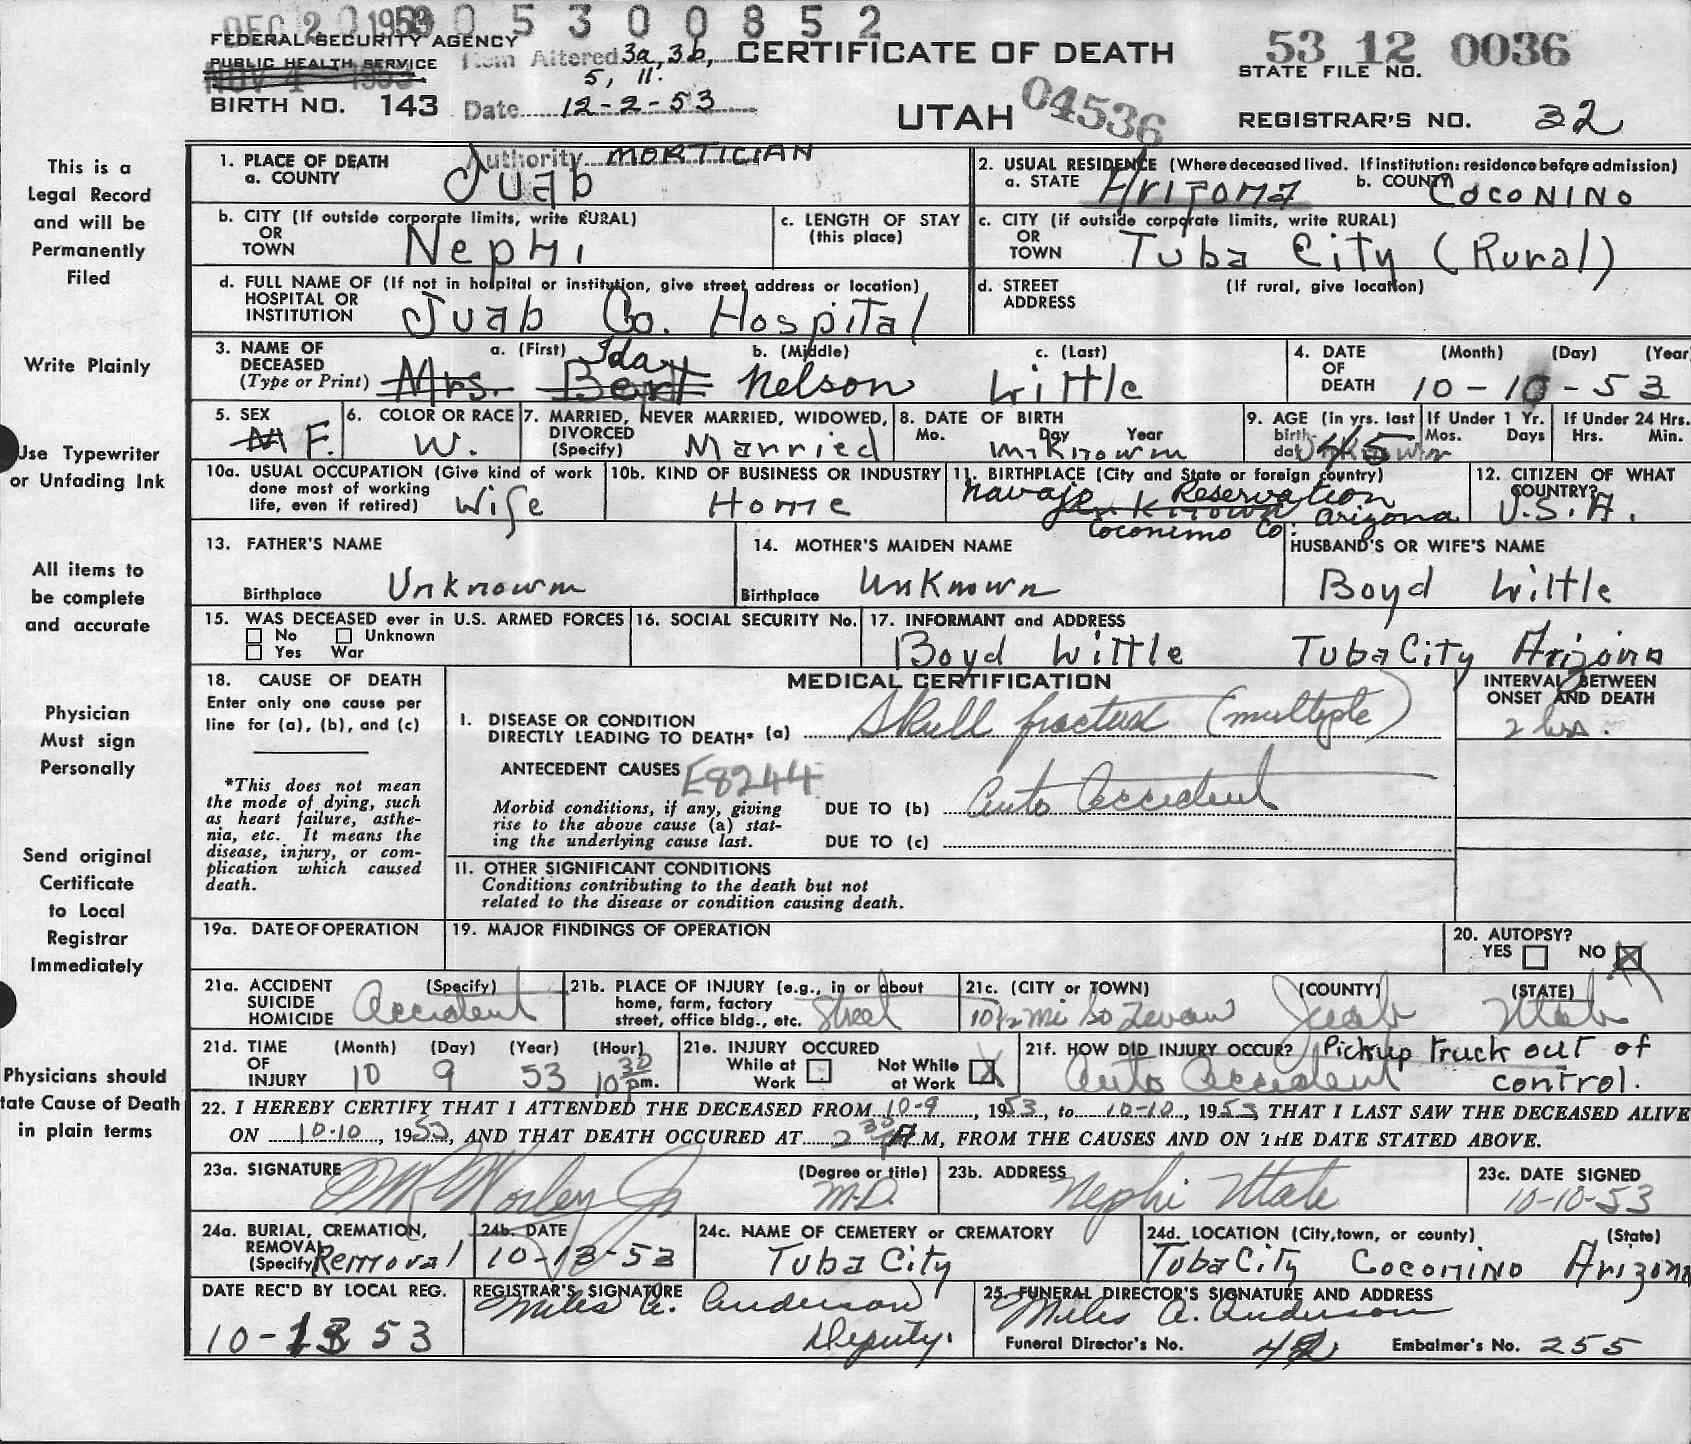 DEC 2 0 1953 0 5 3 0 0 8 5 2
FEDERAL SECURITY AGENCY
PUBLIC HEALTH SERVICE
NOV 4 1953
Item Altered 3a, 3b, 5, 11.
CERTIFICATE OF DEATH
53 12 0036
STATE FILE NO.
BIRTH NO. 143
Date 12-2-53
UTAH
04536
REGISTRAR'S NO. 32
Authority MORTICIAN
This is a
Legal Record
and will be
Permanently
Filed
Write Plainly
Use Typewriter
or Unfading Ink
All items to
be complete
and accurate
Physician
Must sign
Personally
Send original
Certificate
to Local
Registrar
Immediately
Physicians should
tate Cause of Death
in plain terms
1. PLACE OF DEATH
a. COUNTY Juab
2. USUAL RESIDENCE (Where deceased lived. If institution: residence before admission)
a. STATE Arizona b. COUNTY COCONINO
b. CITY (If outside corporate limits, write RURAL)
OR
TOWN Nephi
c. LENGTH OF STAY
(this place)
c. CITY (if outside corporate limits, write RURAL)
OR
TOWN Tuba City (Rural)
d. FULL NAME OF (If not in hospital or institution, give street address or location)
HOSPITAL OR
INSTITUTION Juab Co. Hospital
d. STREET
ADDRESS
(If rural, give location)
3. NAME OF
DECEASED
(Type or Print)
a. (First) b. (Middle) c. (Last)
Mrs. Bert Ida Nelson Little
4. DATE
OF
DEATH
(Month) (Day) (Year
10-10-53
5. SEX
M F.
6. COLOR OR RACE
W.
7. MARRIED, NEVER MARRIED, WIDOWED,
DIVORCED
(Specify) Married
8. DATE OF BIRTH
Mo. Day Year
unknown
9. AGE (in yrs. last
birth-
day) Unknown 45
If Under 1 Yr.
Mos. Days
If Under 24 Hrs.
Hrs. Min.
10a. USUAL OCCUPATION (Give kind of work
done most of working
life, even if retired) Wife
10b. KIND OF BUSINESS OR INDUSTRY
Home
11. BIRTHPLACE (City and State or foreign country)
Navajo Reservation
Unknown Arizona
Coconino Co.
12. CITIZEN OF WHAT
COUNTRY?
U.S.A.
13. FATHER'S NAME
Birthplace Unknown
14. MOTHER'S MAIDEN NAME
Birthplace Unknown
HUSBAND'S OR WIFE'S NAME
Boyd Little
15. WAS DECEASED ever in U.S. ARMED FORCES
No Unknown
Yes War
16. SOCIAL SECURITY No.
17. INFORMANT and ADDRESS
Boyd Little Tuba City Arizona
18. CAUSE OF DEATH
Enter only one cause per
line for (a), (b), and (c)
*This does not mean
the mode of dying, such
as heart failure, asthe-
nia, etc. It means the
disease, injury, or com-
plication which caused
death.
MEDICAL CERTIFICATION
INTERVAL BETWEEN
ONSET AND DEATH
I. DISEASE OR CONDITION
DIRECTLY LEADING TO DEATH* (a) Skull fractured (multiple) 2 hrs.
ANTECEDENT CAUSES E8244
Morbid conditions, if any, giving
rise to the above cause (a) stat-
ing the underlying cause last.
DUE TO (b) Auto Accident
DUE TO (c)
11. OTHER SIGNIFICANT CONDITIONS
Conditions contributing to the death but not
related to the disease or condition causing death.
19a. DATE OF OPERATION
19. MAJOR FINDINGS OF OPERATION
20. AUTOPSY?
YES NO X
21a. ACCIDENT (Specify)
SUICIDE
HOMICIDE Accident
21b. PLACE OF INJURY (e.g., in or about
home, farm, factory
street, office bldg., etc. Street
21c. (CITY or TOWN) (COUNTY) (STATE)
10 1/2 Mi So Levan Juab Utah
21d. TIME
OF
INJURY
(Month) (Day) (Year) (Hour)
10 9 53 10 30 pm.
21e. INJURY OCCURED
While at
Work
Not While
at Work X
21f. HOW DID INJURY OCCUR? Pickup truck out of
Auto Accident control.
22. I HEREBY CERTIFY THAT I ATTENDED THE DECEASED FROM 10-9, 1953, to 10-10, 1953 THAT I LAST SAW THE DECEASED ALIVE
ON 10-10, 1953, AND THAT DEATH OCCURED AT 2 30 A M, FROM THE CAUSES AND ON THE DATE STATED ABOVE.
23a. SIGNATURE (Degree or title)
Worley Jr M.D.
23b. ADDRESS
Nephi Utah
23c. DATE SIGNED
10-10-53
24a. BURIAL, CREMATION,
REMOVAL
(Specify) Removal
24b. DATE
10-13-53
24c. NAME OF CEMETERY or CREMATORY
Tuba City
24d. LOCATION (City, town, or county) (State)
Tuba City Coconino Arizona
DATE REC'D BY LOCAL REG.
10-13 53
REGISTRAR'S SIGNATURE
Miles A. Anderson
Deputy.
25. FUNERAL DIRECTOR'S SIGNATURE AND ADDRESS
Miles A. Anderson
Funeral Director's No. 42 Embalmer's No. 255